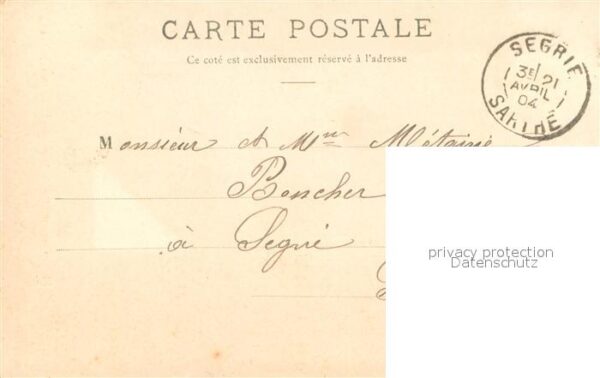 CARTE POSTALE
Ce coté est exclusivement réservé à l'adresse
SEGRIE
3E 21
AVRIL
04
SARTHE
Monsieur et Mme Métairie
Boucher
à Segrié
privacy protection
Datenschutz